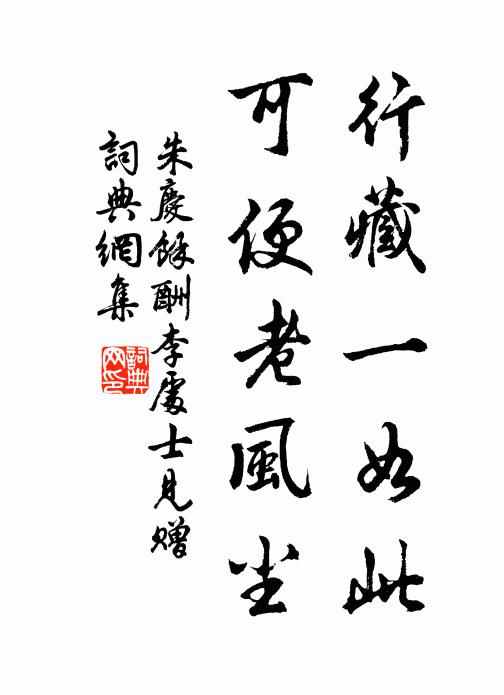 行藏一如此
可便老風尘
朱慶餘酬李處士見贈
詞典網集
詞典
网印